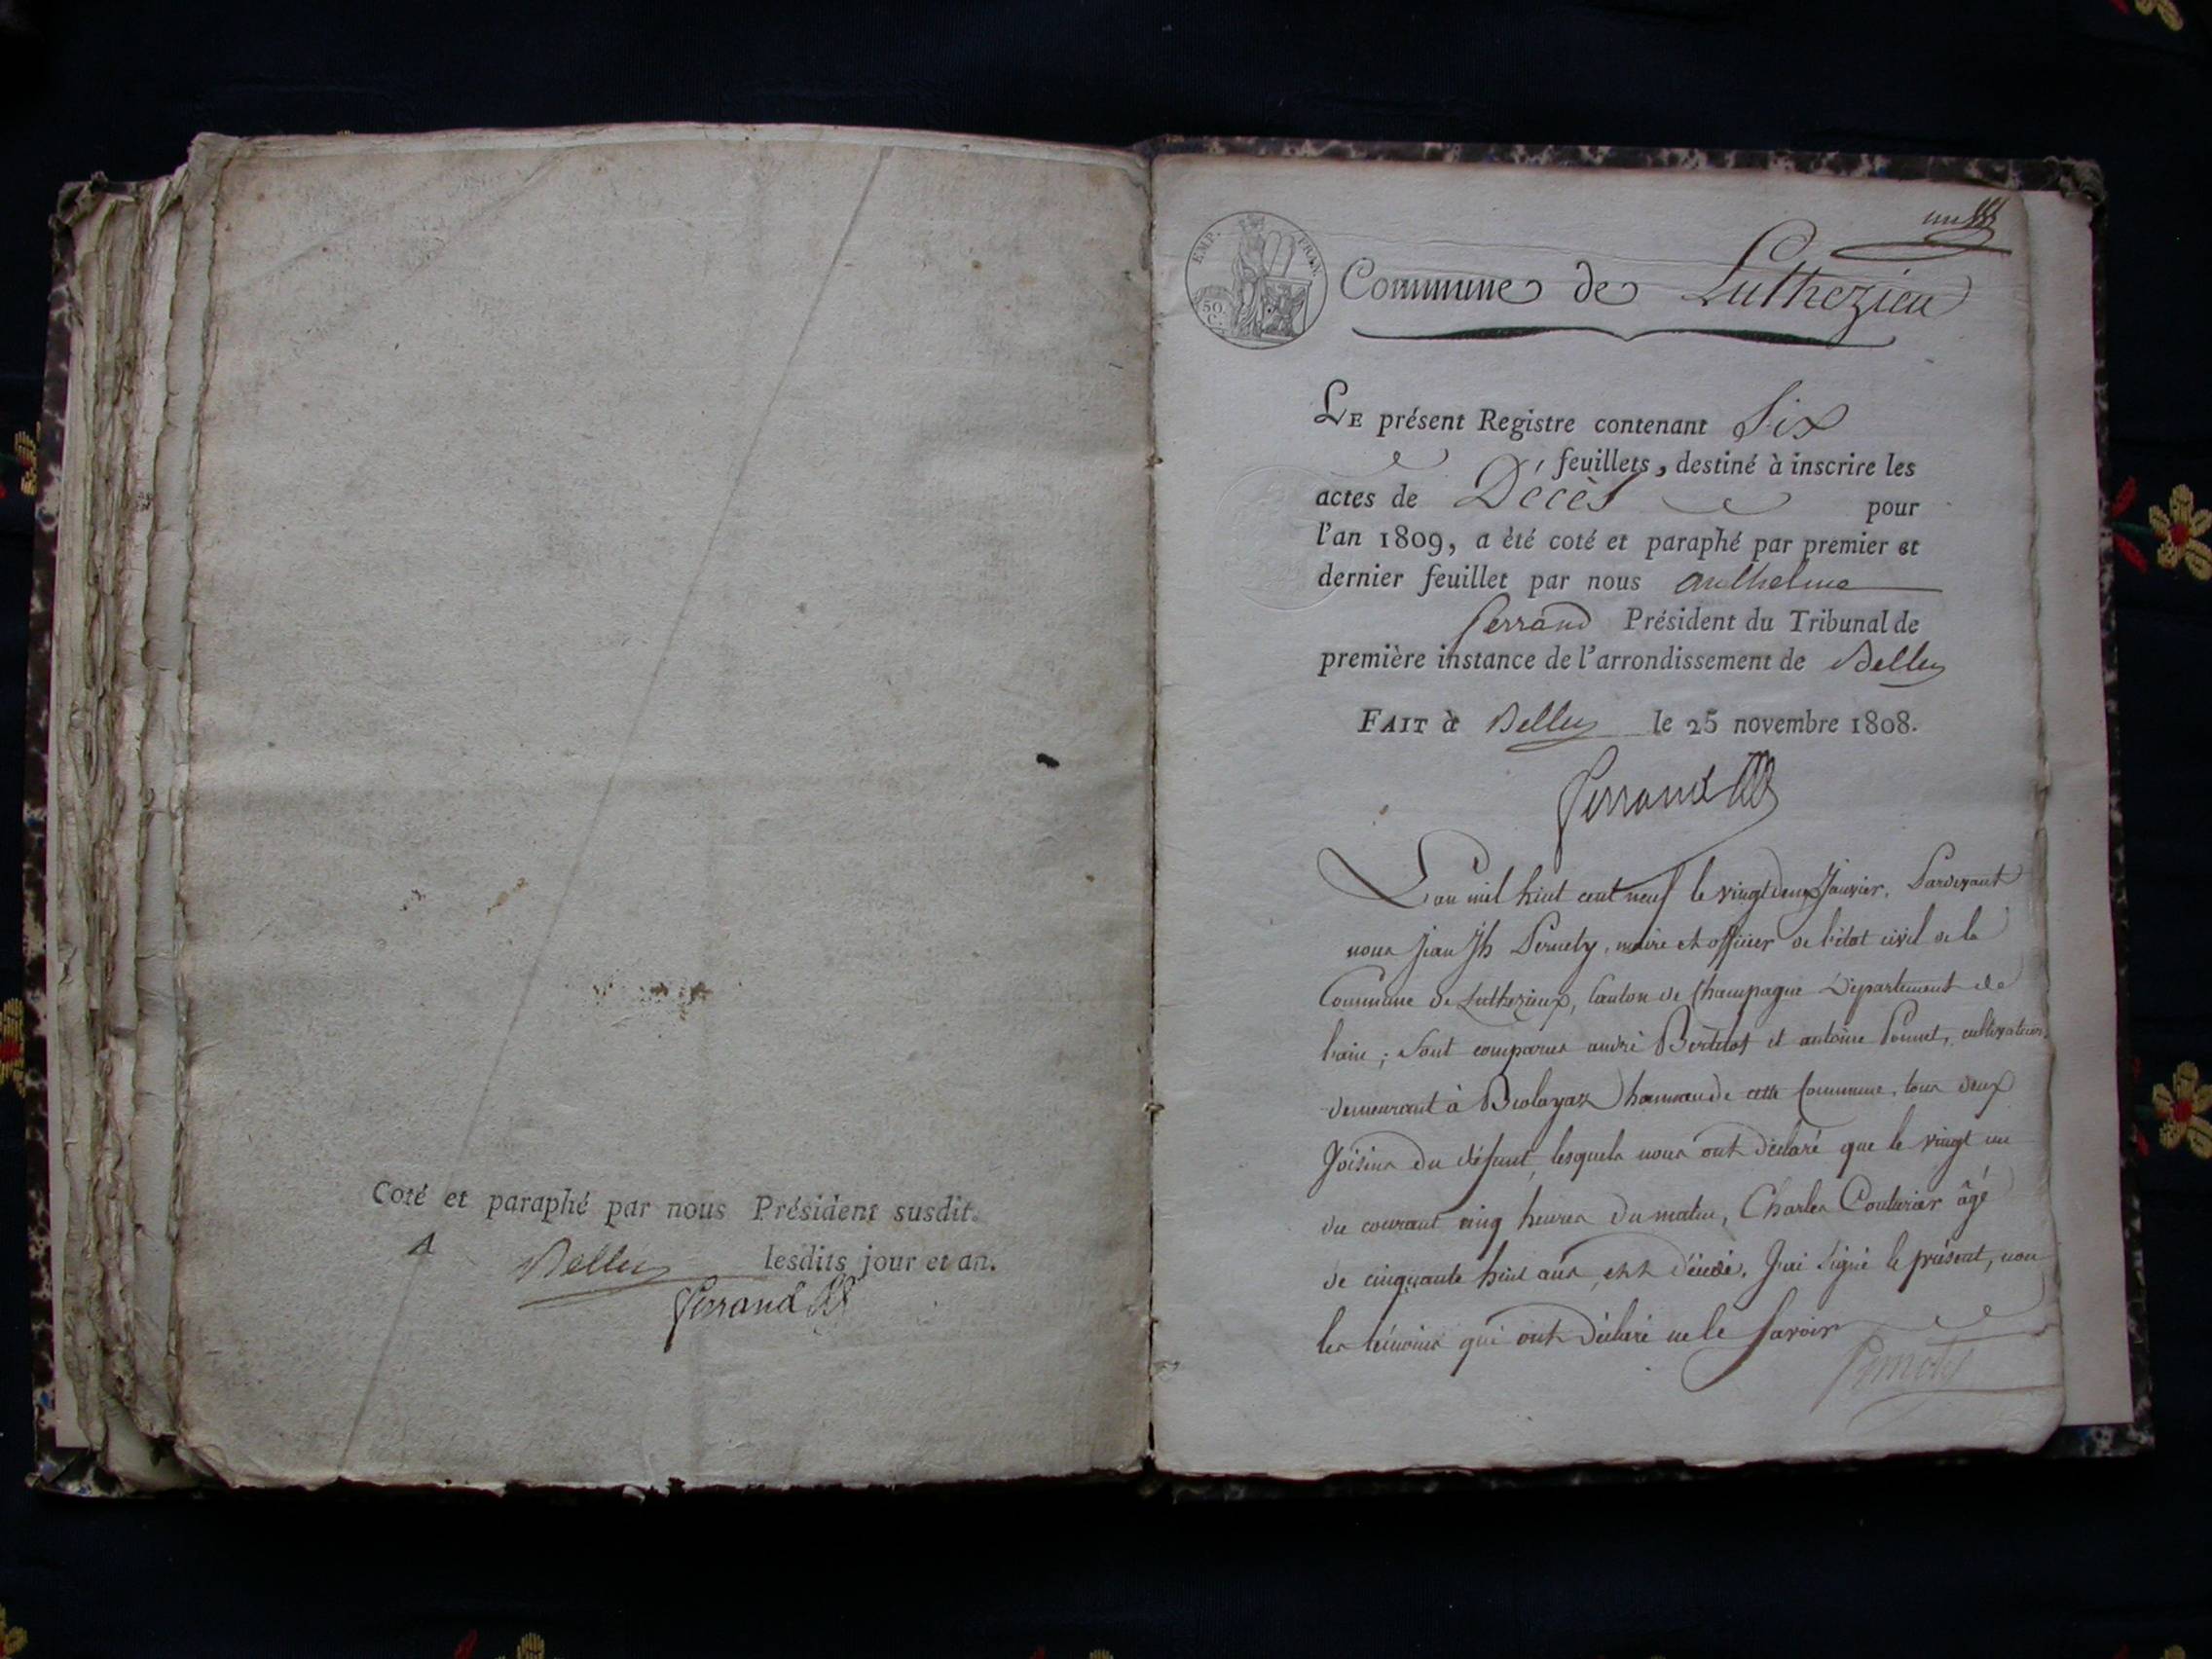 Coté et paraphé par nous Président susdit.
A Belley lesdits jour et an.
Ferrand
un
EMP. FRAN.
50 C.
Commune de Luthezieu
LE présent Registre contenant Six
feuillets, destiné à inscrire les
actes de Décès pour
l'an 1809, a été coté et paraphé par premier et
dernier feuillet par nous anthelme
ferrand Président du Tribunal de
première instance de l'arrondissement de Belley
FAIT à Belley le 25 novembre 1808.
Ferrand
L'an mil huit cent neuf le vingt deux Janvier. Pardevant
nous Jean Jh Pernety, maire et officier de l'état civil de la
Commune de Luthezieux, Canton de Champagne Département de
l'ain; Sont comparus andré Berthet et antoine Ponnet, cultivateurs,
demeurant à Beolayaz hameau de cette Commune, tous deux
Voisins du défunt, lesquels nous ont déclaré que le vingt un
du courant cinq heures du matin, Charles Couturier âgé
de cinquante huit ans, est décédé. J'ai Signé le présent, non
les témoins qui ont déclaré ne le Savoir
Pernety